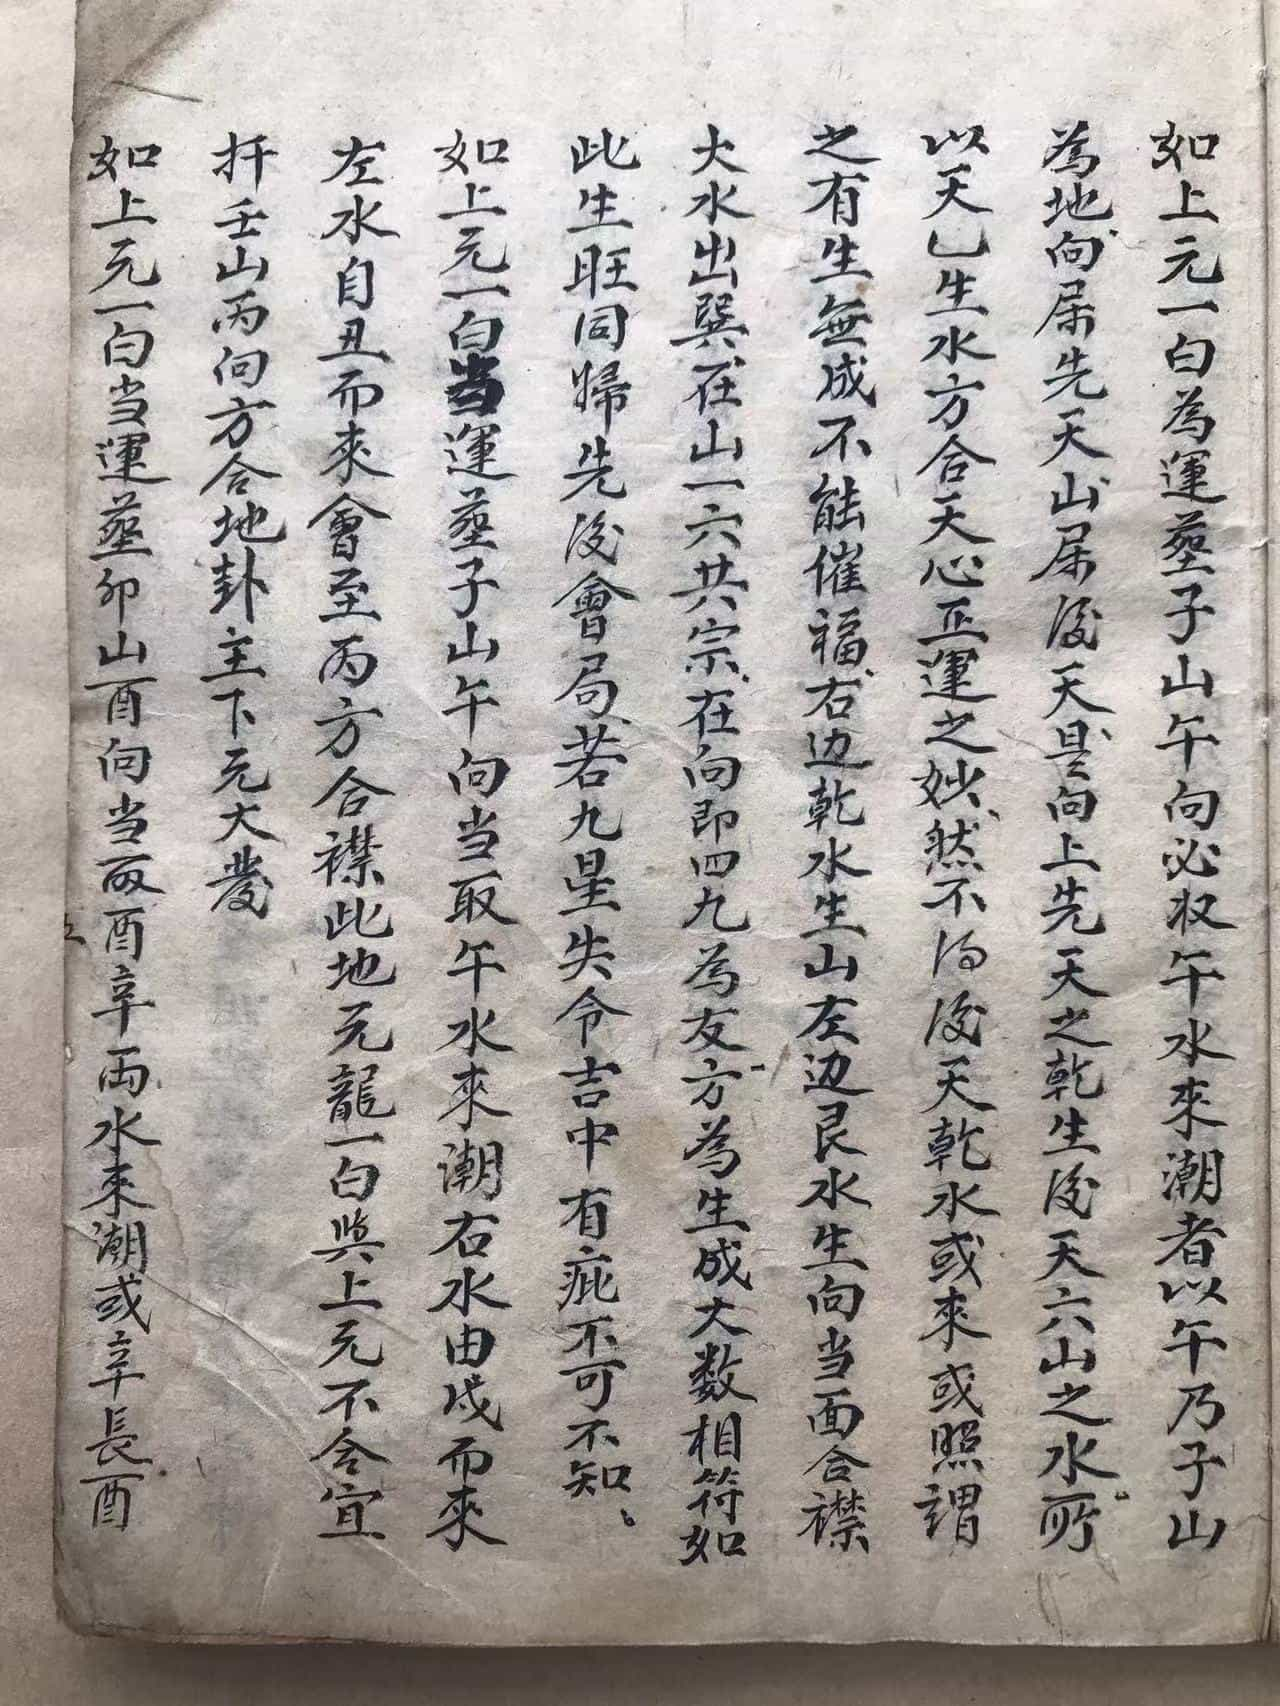 如上元一白為運塟子山午向必收午水來潮者以午乃子山
為地向屎先天山屎後天是向上先天之乾生後天六山之水所
以天乙生水方合天心正運之妙然不得後天乾水或來或照謂
之有生無成不能催福右边乾水生山左边艮水生向当面合襟
大水出巽在山一六共宗在向即四九為友方為生成大数相符如
此生旺同歸先後會局若九星失令吉中有疵不可不知
如上元一白当運塟子山午向当取午水來潮右水由戌而來
左水自丑而來會至丙方合襟此地元龍一白與上元不合宜
扦壬山丙向方合地卦主下元大發
如上元一白当運塟卯山酉向当取酉辛両水來潮或辛長酉